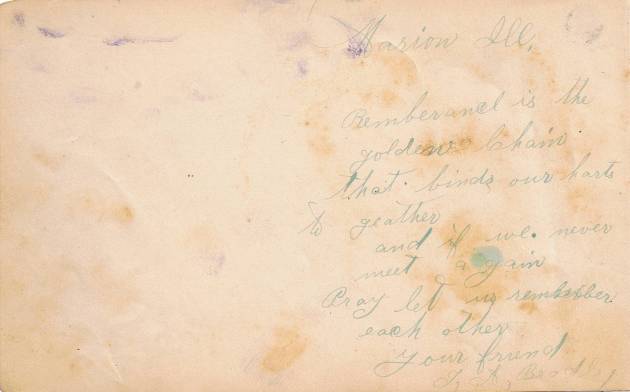 Marion Ill.
Remberancl is the
golden Chain
that binds our harts
to geather
and if we never
meet a gain
Pray let us remember
each other
Your friend